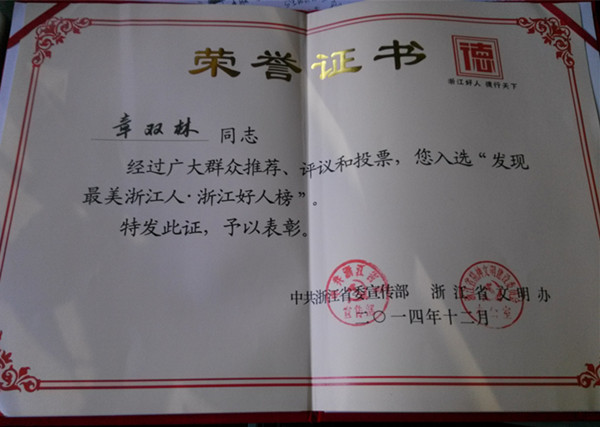 荣誉证书
德
浙江好人 德行天下
章双林 同志
经过广大群众推荐、评议和投票，您入选“发现
最美浙江人·浙江好人榜”。
特发此证，予以表彰。
中共浙江省委宣传部 浙江省文明办
二〇一四年十二月